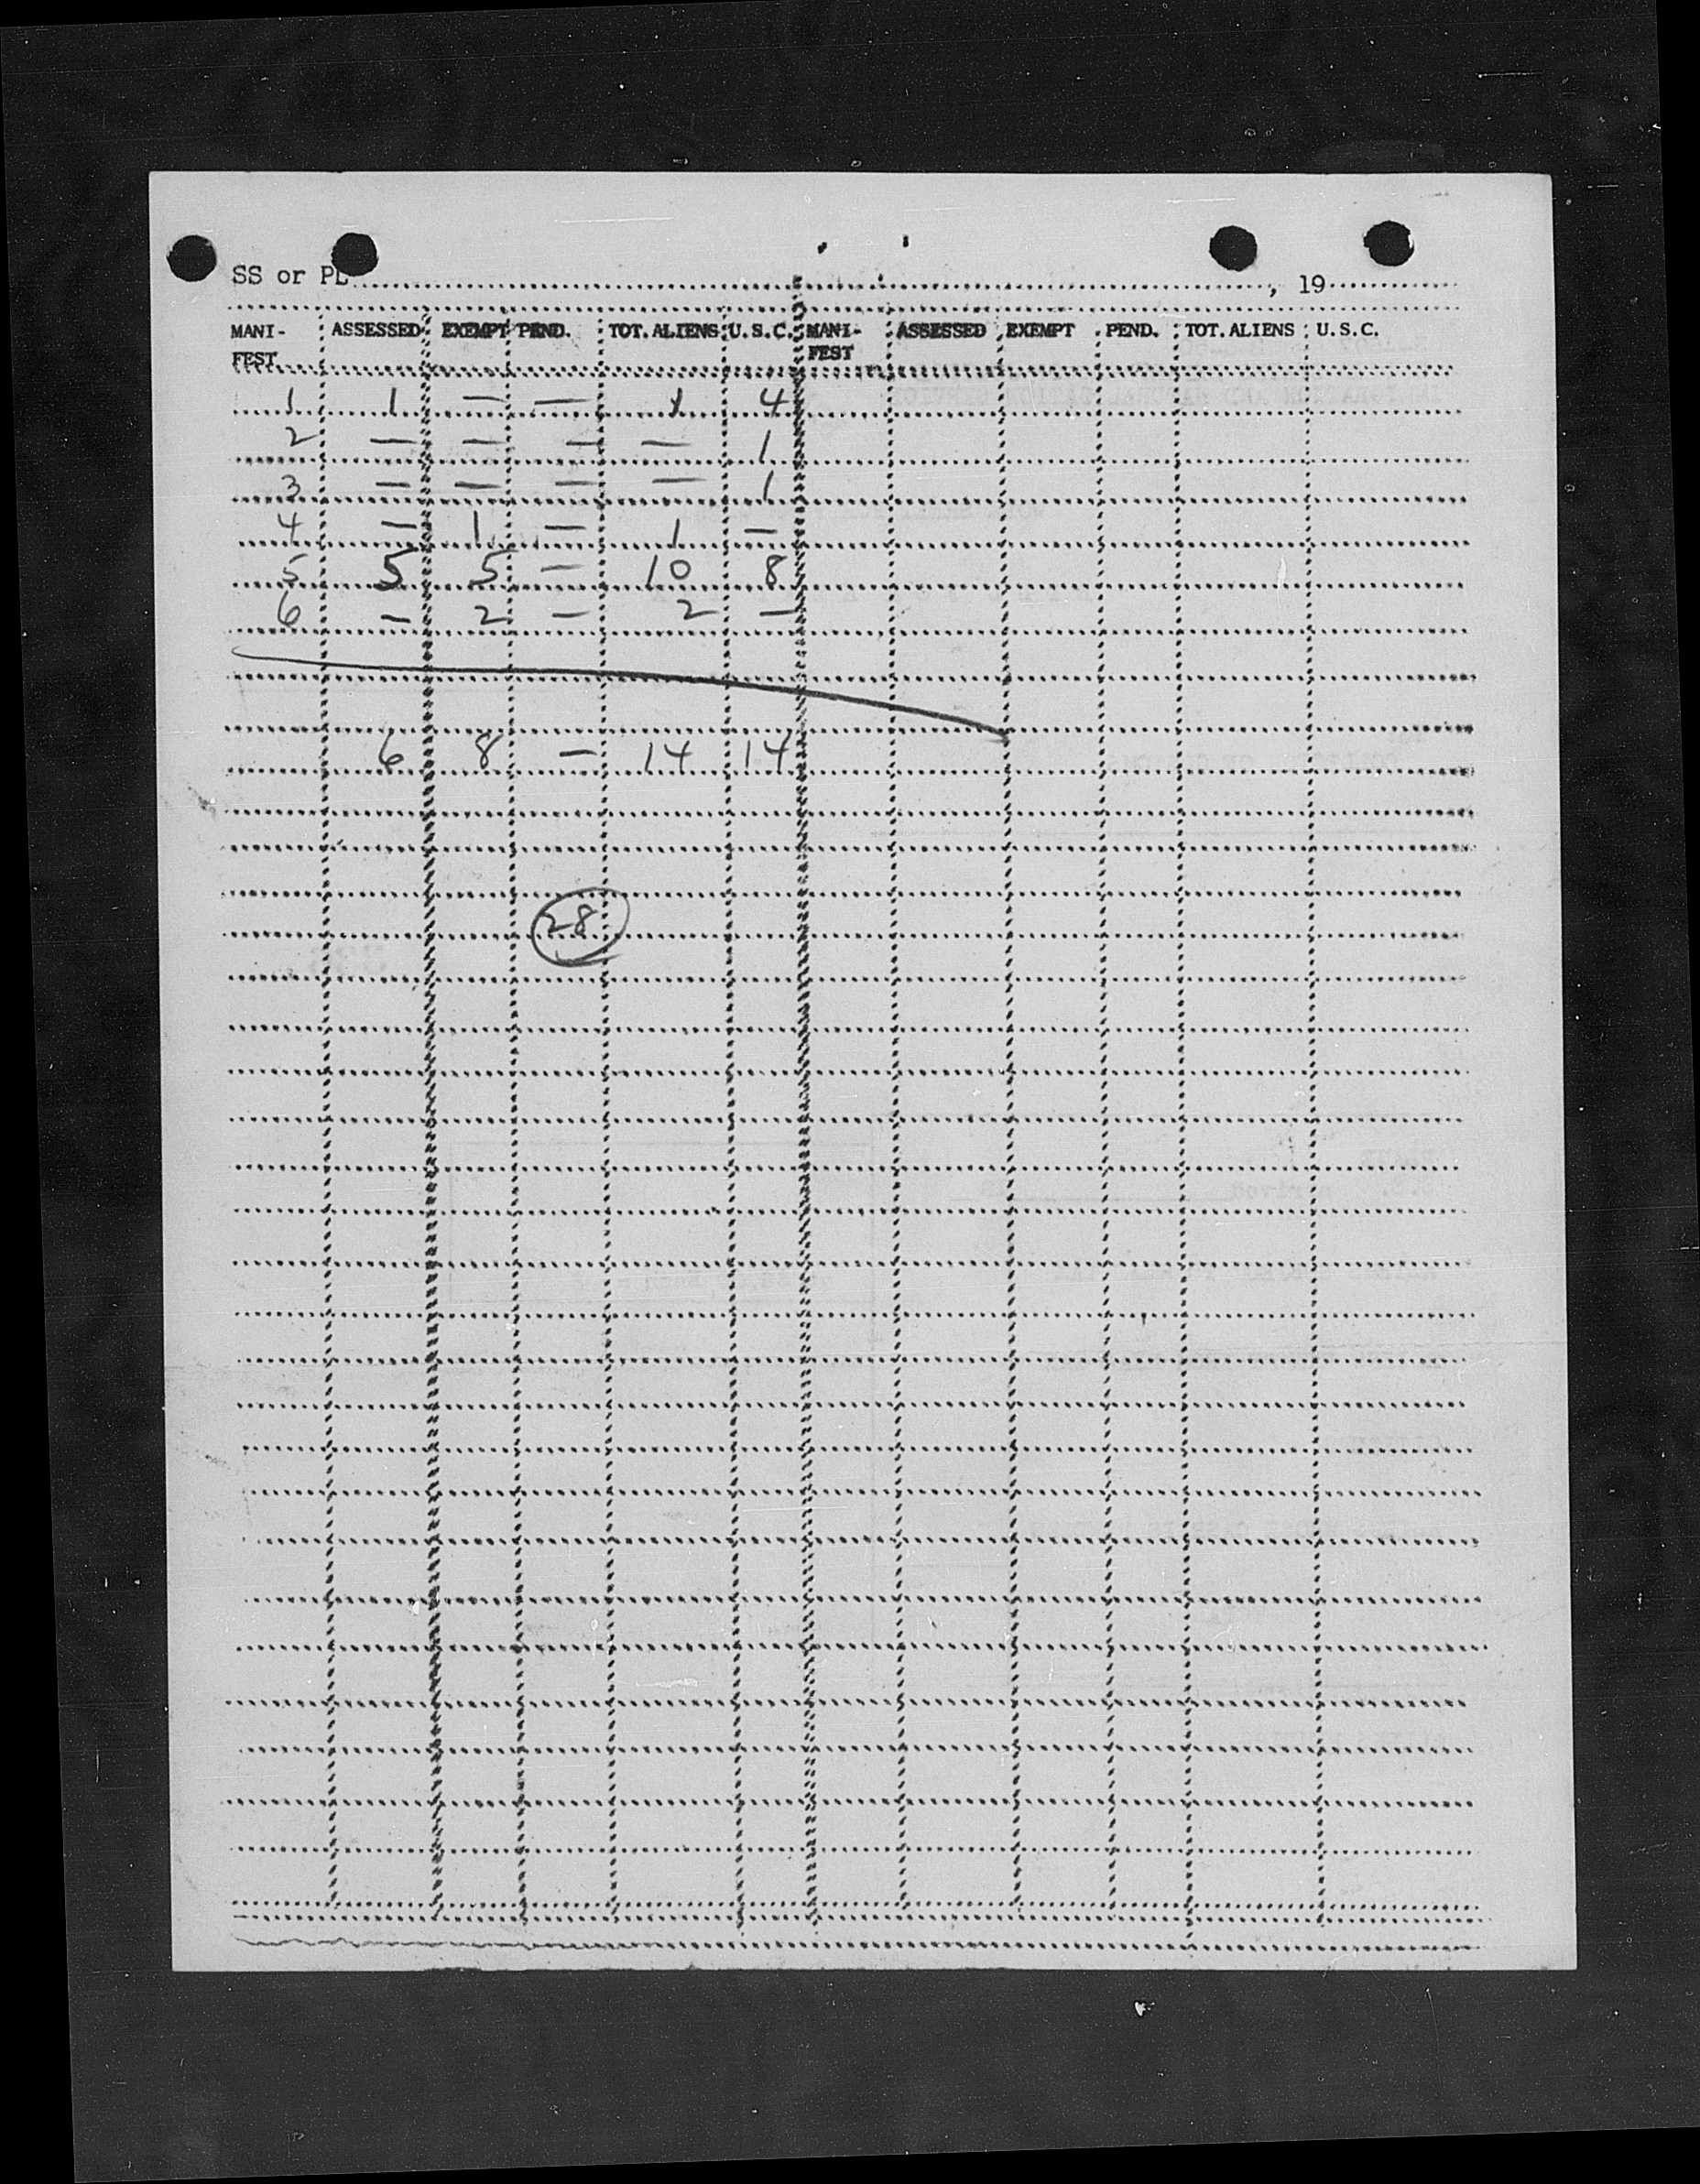 SS or PL , 19
MANI-FEST ASSESSED EXEMPT PEND. TOT. ALIENS U.S.C. MANI-FEST ASSESSED EXEMPT PEND. TOT. ALIENS U.S.C.
1 1 — — 1 4
2 — — — — 1
3 — — — — 1
4 — 1 — 1 —
5 5 5 — 10 8
6 — 2 — 2 —
6 8 — 14 14
28